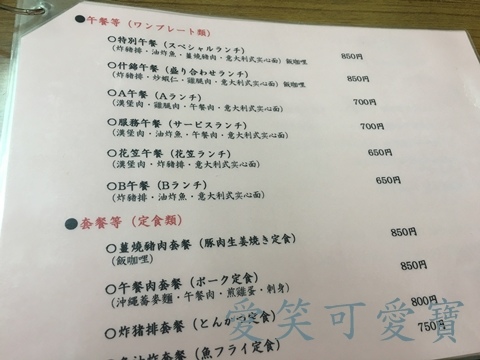 ●午餐等（ワンプレート類）
○特別午餐（スペシャルランチ） 850円
（炸豬排・油炸魚・薑燒豬肉・意大利式实心面）飯咖哩
○什錦午餐（盛り合わせランチ） 850円
（炸豬排・炒蝦仁・雞腿肉・意大利式实心面）飯咖哩
○A午餐（Aランチ） 700円
（漢堡肉・雞腿肉・午餐肉・意大利式实心面）
○服務午餐（サービスランチ） 700円
（漢堡肉・油炸魚・午餐肉・意大利式实心面）
○花笠午餐（花笠ランチ） 650円
（漢堡肉・炸豬排・意大利式实心面）
○B午餐（Bランチ） 650円
（炸豬排・油炸魚・意大利式实心面）
●套餐等（定食類）
○薑燒豬肉套餐（豚肉生姜焼き定食） 850円
（飯咖哩）
○午餐肉套餐（ポーク定食） 850円
（沖縄蕎麥麵・午餐肉・煎雞蛋・刺身）
○炸豬排套餐（とんかつ定食） 800円
魚油炸套餐（魚フライ定食） 750円
愛笑可愛寶